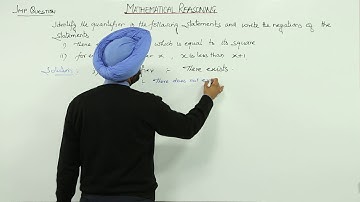 Imp Question
MATHEMATICAL REASONING
Identify the quantifier in the following statements and write the negations of the
statements
i) There which is equal to its square
ii) for x, x is less than x+1
Solution: = There exists
: There does not